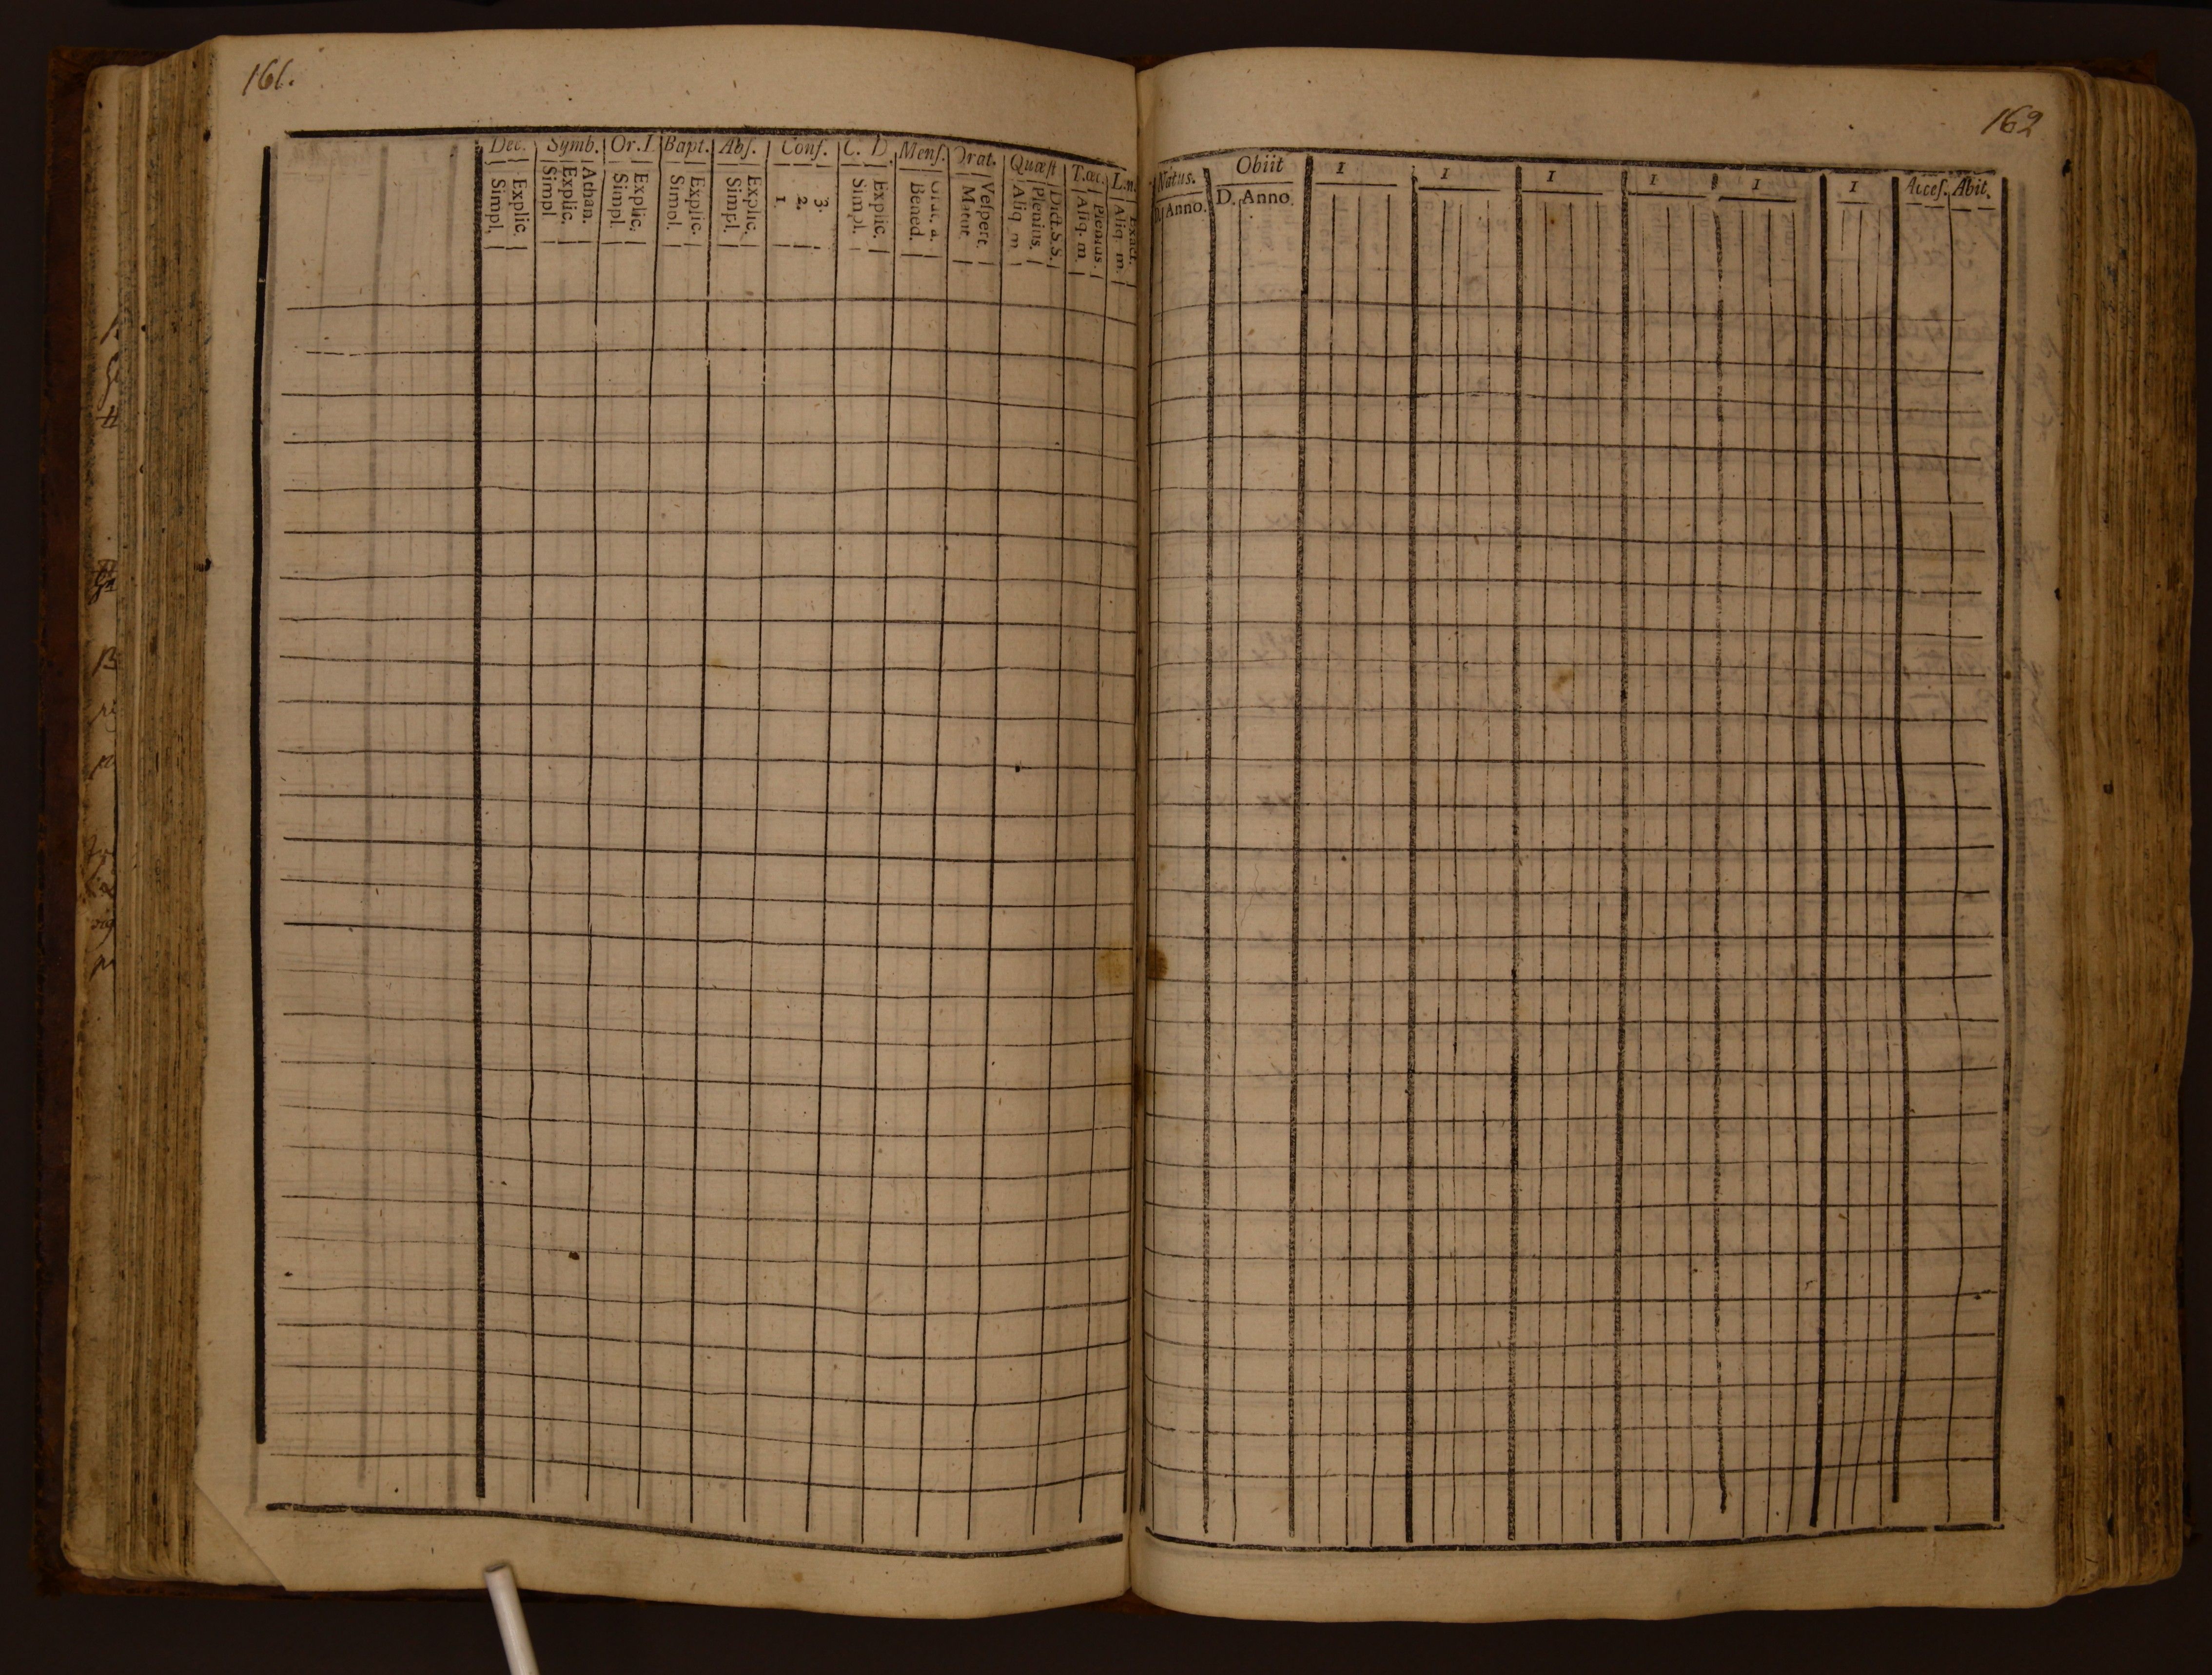 161.
Dec. Symb. Or. I Bapt. Abſ. Conf. C. D. Menſ. Orat. Quæſt T. œc. L.n.
Simpl. Explic. Simpl Explic. Athan. Simpl. Explic. Simpl. Explic. Simpl. Explic. 1 2. 3. Simpl. Explic. Bened. Matut. Veſpert. Aliq. m. Plenius. Dict. S. S. Aliq. m Plenius. Aliq. m. Exact.
162
Natus. Obiit 1 1 1 1 1 1 Acceſ. Abit.
D. Anno. D. Anno.